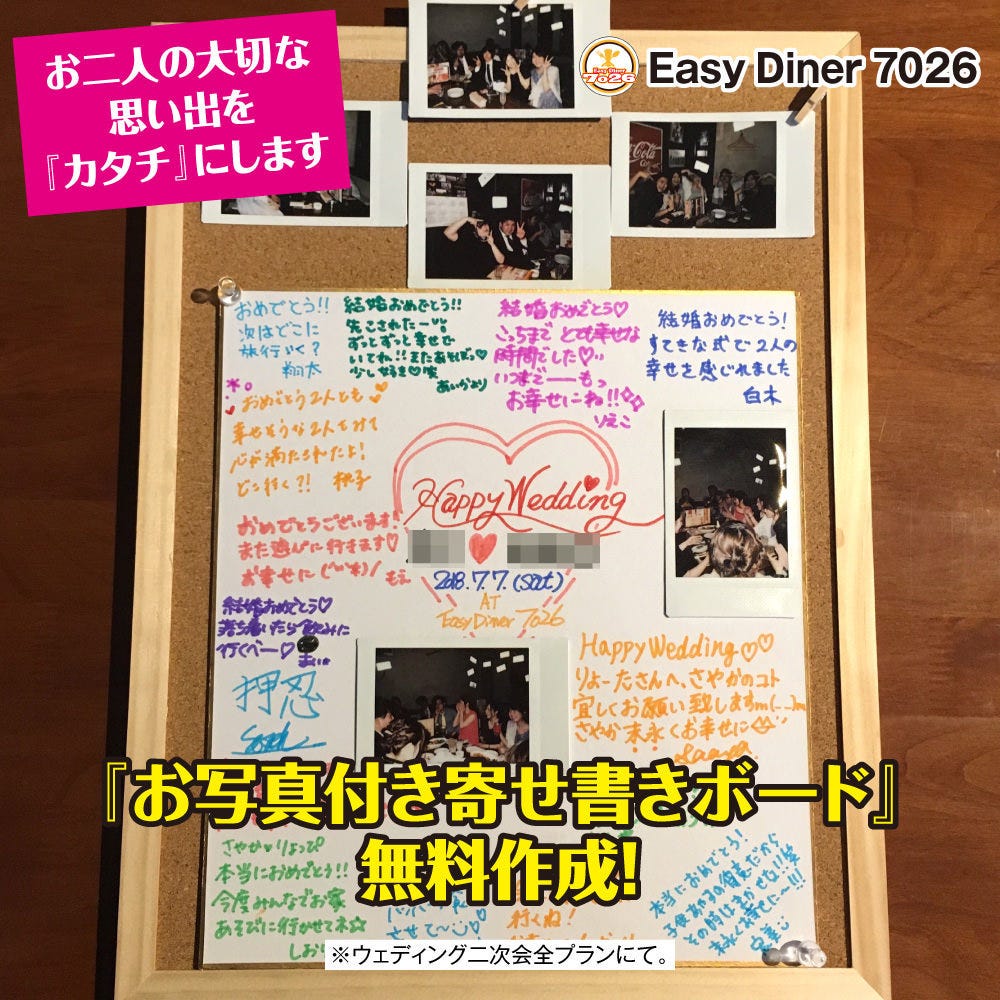 お二人の大切な
思い出を
『カタチ』にします
Easy Diner
7026
Easy Diner 7026
Coca-Cola
おめでとう!!
次はどこに
旅行いく?
翔太
結婚おめでとう!!
先こされたー
ずっとずっと幸せで
いてね!!またあそぼっ♡
少し好き♡笑
あいかより
結婚おめでとう♡
こっちまで とても幸せな
時間でした♡
いつまでーーもっ
お幸せにね!!
りえこ
結婚おめでとう!
すてきな式で2人の
幸せを感じれました
白木
おめでとう2人とも
幸せそうな2人をみて
心が満たされたよ!
どこ行く?! 桃子
おめでとうございます!
また遊びに行きます♡
お幸せに
もえ
Happy Wedding
2018.7.7.(sat)
AT
Easy Diner 7026
結婚おめでとう♡
落ち着いたら飲みに
行くべー♡
まい
押忍
Happy Wedding♡♡
りょーたさんへ、さやかのコト
宜しくお願い致しますm(_ _)m
さやか 末永くお幸せに
『お写真付き寄せ書きボード』
無料作成!
さやか♡りょっぴ
本当におめでとう!!
今度みんなでお家
あそびに行かせてネ☆
しおり
させて〜
行くね!
本当におめでとう!
その時はまかせな!!笑
末永くお幸せにー!!!
※ウェディング二次会全プランにて。